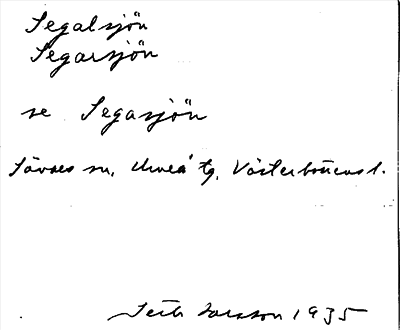 Segalsjön
Segarsjön
se Segasjön
Sävars sn, Umeå tg, Västerbottens l.
Seth Larsson 1935